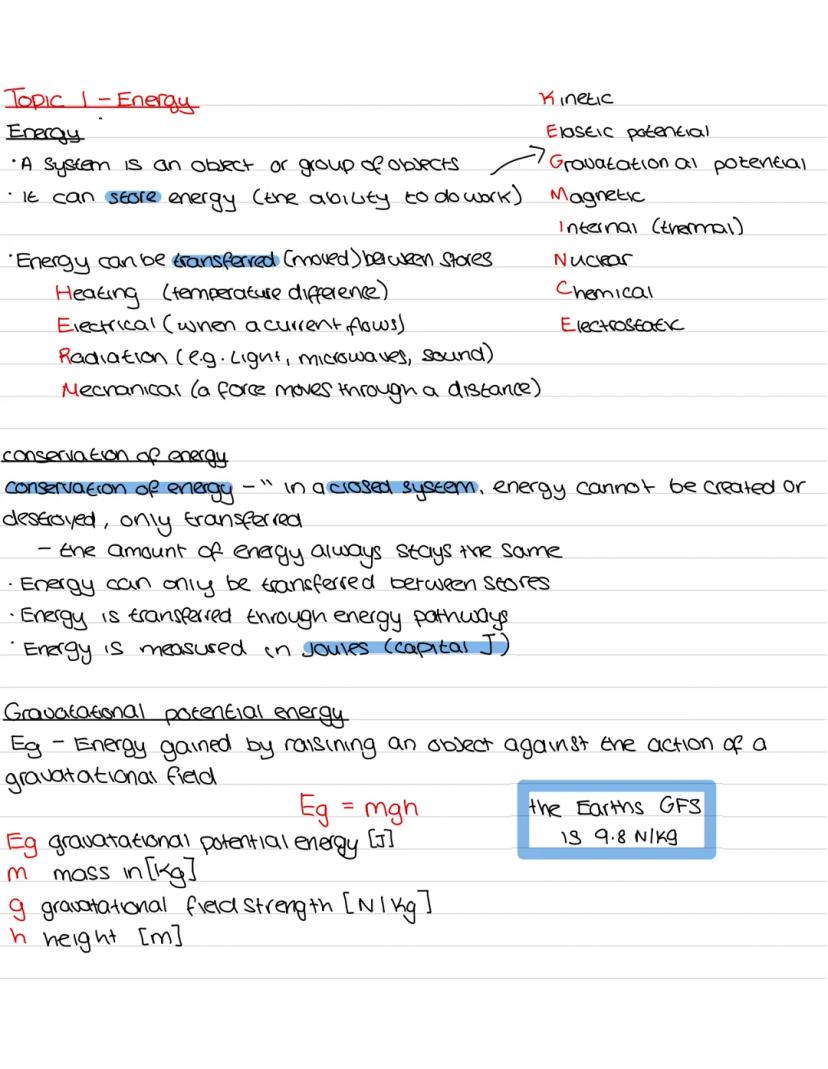 Topic 1 - Energy
Energy
· A system is an object or group of objects
· It can store energy (the ability to do work)
· Energy can be transferred (moved) between stores
Heating (temperature difference)
Electrical (when a current flows)
Radiation (e.g. Light, microwaves, sound)
Mechanical (a force moves through a distance)
Kinetic
Elastic potential
Gravatational potential
Magnetic
Internal (thermal)
Nuclear
Chemical
Electrostatic
conservation of energy
conservation of energy - " in a closed system, energy cannot be created or
destroyed, only transferred
- the amount of energy always stays the same
· Energy can only be transferred between stores
· Energy is transferred through energy pathways
· Energy is measured in Joules (capital J)
Gravatational potential energy
Eg - Energy gained by raisining an object against the action of a
gravatational field
Eg = mgh
the Earths GFS
is 9.8 N/kg
Eg gravatational potential energy [J]
m mass in [kg]
g gravatational field strength [N/kg]
h height [m]